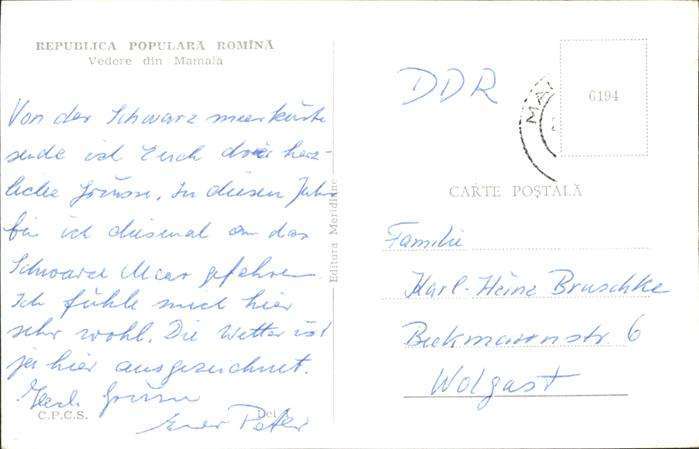 REPUBLICA POPULARĂ ROMÎNĂ
Vedere din Mamaia
Von der Schwarzmeerküste
sende ich Euch drei herz-
liche Grüsse. In diesem Jahr
bin ich diesmal an das
Schwarze Meer gefahren
Ich fühle mich hier
sehr wohl. Die Wetter ist
ja hier ausgezeichnet.
Herzl. Grüsse
Euer Peter
C.P.C.S.
Editura Meridiane
DDR
6194
CARTE POŞTALĂ
Familie
Karl-Heinz Bruschke
Beckmannstr. 6
Wolgast